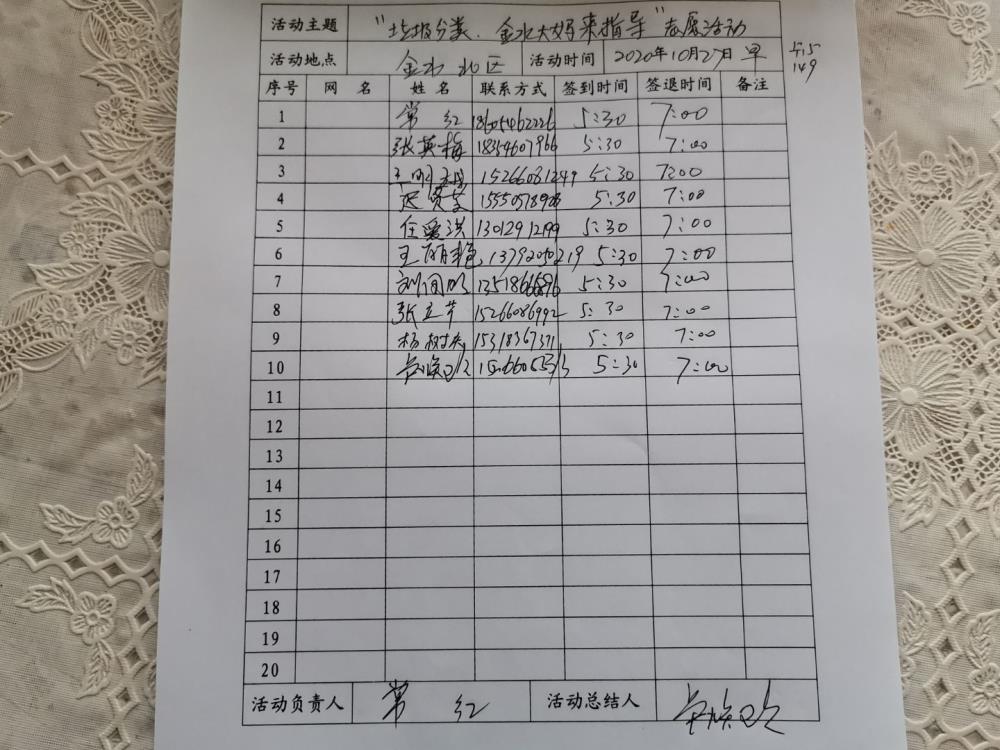 活动主题 "垃圾分类、金水大妈来指导"志愿活动
活动地点 金水北区 活动时间 2020年10月27日 早
515
149
序号 网名 姓名 联系方式 签到时间 签退时间 备注
1 常红 18605462226 5:30 7:00
2 张英梅 18354607966 5:30 7:00
3 15266081249 5:30 7:00
4 5:30 7:00
5 任爱洪 13012912 5:30 7:00
6 王丽艳 5:30 7:00
7 5:30 7:00
8 张立芹 15266086992 5:30 7:00
9 杨树 15318367371 5:30 7:00
10 5:30 7:00
11
12
13
14
15
16
17
18
19
20
活动负责人 常红 活动总结人